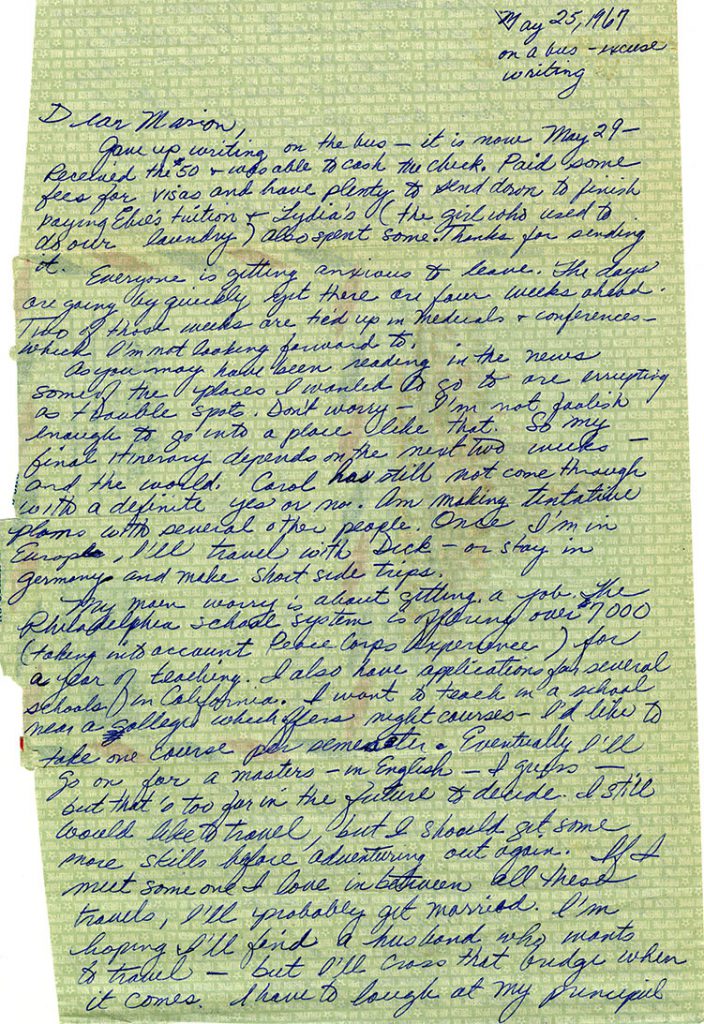 May 25, 1967
on a bus - excuse
writing
Dear Marion,
Gave up writing on the bus - it is now May 29 -
Received the $50 + was able to cash the check. Paid some
fees for visas and have plenty to send down to finish
paying Ebie's tuition + Lydia's (the girl who used to
do our laundry) also spent some. Thanks for sending
it.
Everyone is getting anxious to leave. The days
are going by quickly yet there are four weeks ahead.
Two of those weeks are tied up in medicals + conferences -
which I'm not looking forward to.
As you may have been reading in the news
some of the places I wanted to go to are errupting
as trouble spots. Don't worry - I'm not foolish
enough to go into a place like that. So my
final itinerary depends on the next two weeks -
and the world. Carol has still not come through
with a definite yes or no. Am making tentative
plans with several other people. Once I'm in
Europe, I'll travel with Dick - or stay in
Germany and make short side trips.
My main worry is about getting a job. The
Philadelphia school system is offering over $7000
(taking into account Peace Corps experience) for
a year of teaching. I also have applications for several
schools in California. I want to teach in a school
near a college which offers night courses - I'd like to
take one course per semester. Eventually I'll
go on for a masters - in English - I guess -
but that's too far in the future to decide. I still
would like to travel, but I should get some
more skills before adventuring out again. If I
meet someone I love in between all these
travels, I'll probably get married. I'm
hoping I'll find a husband who wants
to travel - but I'll cross that bridge when
it comes. I have to laugh at my principal